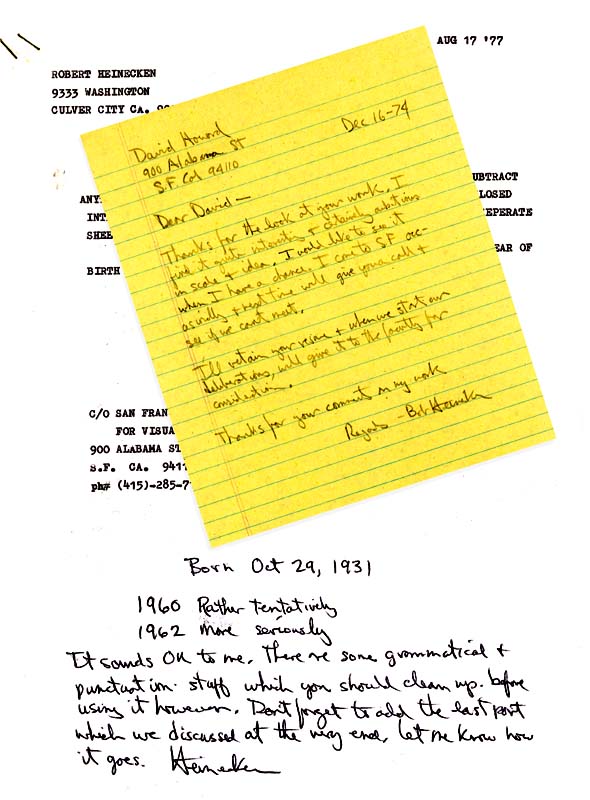 AUG 17 '77
ROBERT HEINECKEN
9333 WASHINGTON
CULVER CITY CA.
UBTRACT
ANY
LOSED
INT
EPERATE
SHEE
EAR OF
BIRTH
C/O SAN FRAN
FOR VISUA
900 ALABAMA ST
S.F. CA. 941
ph# (415)-285-7
Dec 16-74
David Howard
900 Alabama St
S.F. Cal 94110
Dear David—
Thanks for the look at your work. I
find it quite interesting & certainly ambitious
in scale & idea. I would like to see it
when I have a chance. I come to S.F. occ-
asionally & next time will give you a call &
see if we can't meet.
I'll retain your resume & when we start our
deliberations, will give it to the faculty for
consideration.
Thanks for your comment on my work
Regards — Bob Heinecken
Born Oct 29, 1931
1960 Rather tentatively
1962 more seriously
It sounds OK to me. There are some grammatical &
punctuation stuff which you should clean up. before
using it however. Don't forget to add the last part
which we discussed at the very end. Let me know how
it goes. Heinecken